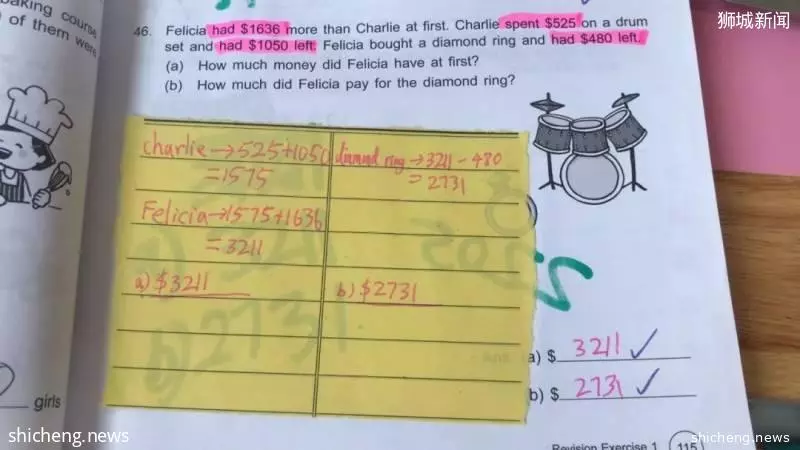 狮城新闻
aking course
of them were
46. Felicia had $1636 more than Charlie at first. Charlie spent $525 on a drum
set and had $1050 left. Felicia bought a diamond ring and had $480 left.
(a) How much money did Felicia have at first?
(b) How much did Felicia pay for the diamond ring?
charlie→525+1050
=1575
Felicia→1575+1636
=3211
a) $3211
diamond ring→3211-480
=2731
b) $2731
a) $ 3211 ✓
b) $ 2731 ✓
girls
Revision Exercise 1 115
shicheng.news
shicheng.news